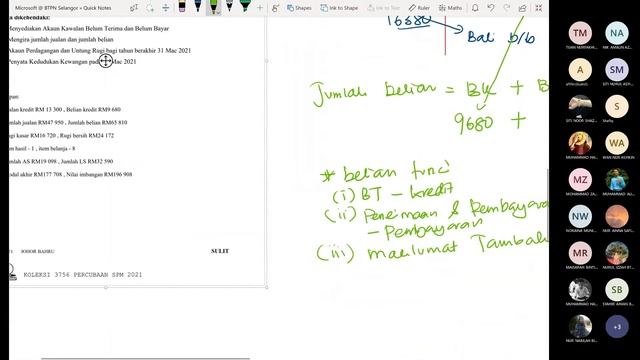 Microsoft @ BTPN Selangor » Quick Notes
Share
Shapes
Ink to Shape
Ink to Math
a dikehendaki:
Menyediakan Akaun Kawalan Belum Terima dan Belum Bayar
Mengira jumlah jualan dan jumlah belian
Akaun Perdagangan dan Untung Rugi bagi tahun berakhir 31 Mac 2021
Penyata Kedudukan Kewangan pada Mac 2021
pan:
alan kredit RM 13 300 , Belian kredit RM9 680
mlah jualan RM47 950 , Jumlah belian RM65 810
gi kasar RM16 720 , Rugi bersih RM24 172
m hasil - 1 , item belanja - 8
mlah AS RM19 098 , Jumlah LS RM32 590
odal akhir RM177 708 , Nilai imbangan RM196 908
JOHOR BAHRU
SULIT
KOLEKSI 3756 PERCUBAAN SPM 2021
16680
Baki b/b
Jumlah belian = BK + B
9680 +
* belian tunai
(i) BT – kredit
(ii) Penerimaan & Pembayara
– Pembayaran
(iii) maklumat Tambah
TM
TUAN NURFAKHI...
A
SM
SITI NURUL ASYI...
SITI NOOR SHAZ...
S
Shafiq
MUHAMMAD HA...
WA
WAN NUR ASYKIN
MZ
MOHAMMAD ZA...
MUHAMMAD AL...
NW
NORAIMI MUNI...
NUR ANNA SAFI...
MR
MAISARAH BINTI...
NURUL IZZAH BT...
MUHAMMAD HA...
SB
+3
NUR NABILAH BI...